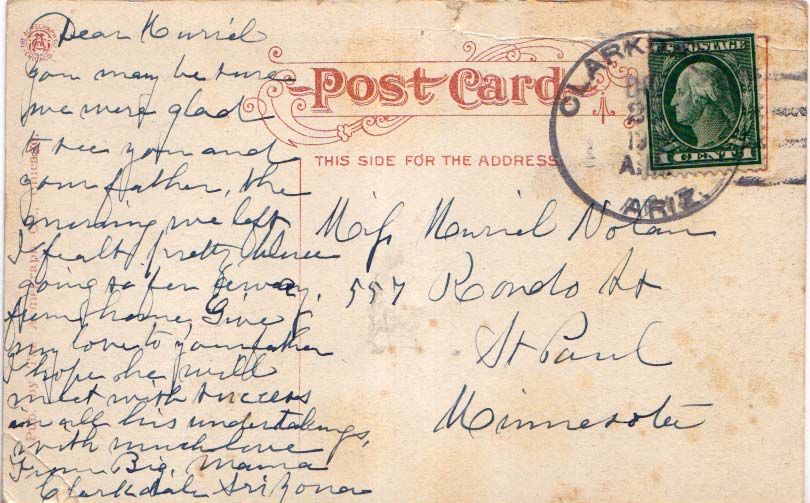 Dear Muriel
you may be sure
we were glad
to see you and
your father, the
morning we left
I fealt pretty blue
going so far away,
from home, Give
my love to your father
I hope he will
meet with success
in all his undertakings,
with much love
From Big, Mama
Clarkdale Arizona
Post Card
THIS SIDE FOR THE ADDRESS
Miss Muriel Nolan
557 Rondo St
St Paul
Minnesota
CLARK
ARIZ.
U.S. POSTAGE
1 CENT 1